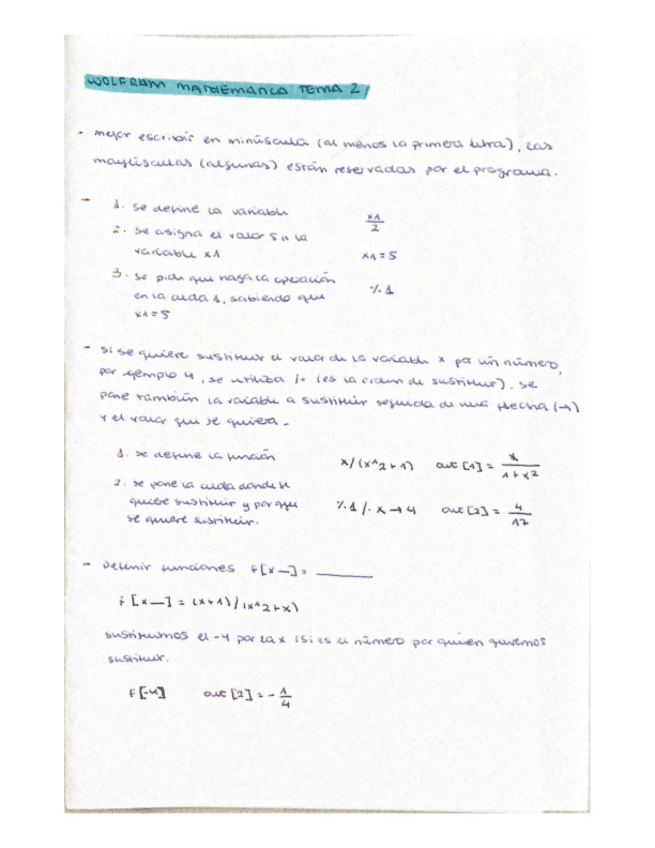 WOLFRAM MATHEMATICA TEMA 2
- mejor escribir en minúscula (al menos la primera letra), las
mayúsculas (algunas) están reservadas por el programa.
- 1. se define la variable x1/2
2. se asigna el valor 5 a la
variable x1 x1 = 5
3. se pide que haga la operación %1
en la celda 1, sabiendo que
x1 = 5
- si se quiere sustituir el valor de la variable x por un número,
por ejemplo 4, se utiliza /. (es la orden de sustituir). se
pone también la variable a sustituir seguida de una flecha (→)
y el valor que se quiera.
1. se define la función x/(x^2+1) out [1] = x/(1+x²)
2. se pone la celda donde se
quiere sustituir y por que %1 /. x → 4 out [2] = 4/17
se quiere sustituir.
- Definir funciones f[x_] = ______
f[x_] = (x+1)/(x^2+x)
sustituimos el -4 por la x si es el número por quien queremos
sustituir.
f[-4] out [2] = - 1/4